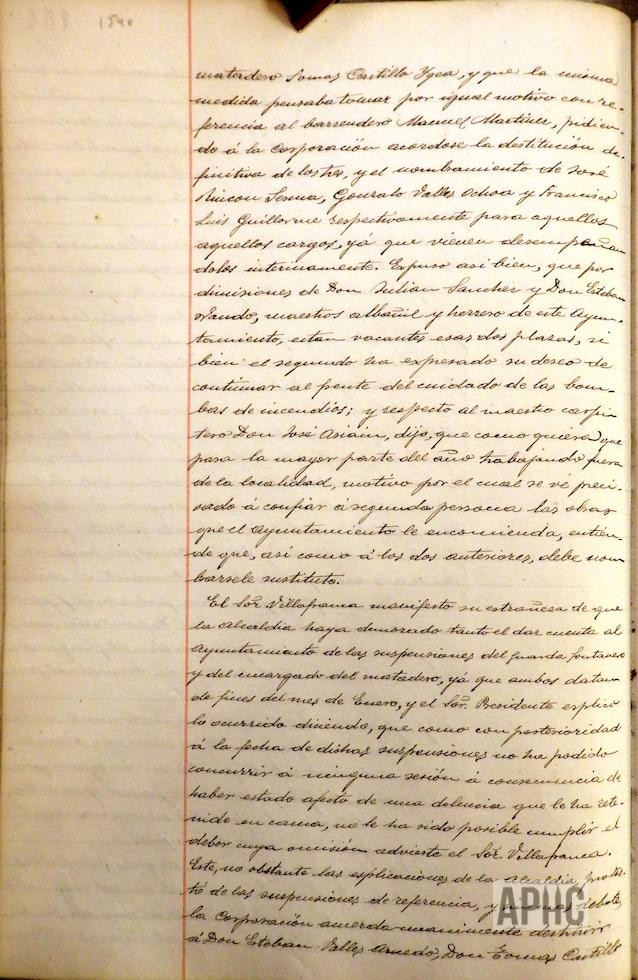 154v
matadero Tomas Castillo Ygea, y que la misma
medida pensaba tomar por igual motivo con re-
ferencia al barrendero Manuel Martinez, pidien-
do á la Corporación acordose la destitución de-
finitiva de los tres, y el nombramiento de José
Rincon Sesma, Gonzalo Valles Ochoa y Francisco
Luis Guillorme respectivamente para aquellos
aquellos cargos, yá que vienen desempeñan
dolos interinamente. Expuso asi bien, que por
dimisiones de Don Julian Sanchez y Don Esteban
maestros albañil y herrero de este Ayun-
tamiento, estan vacantes esas dos plazas, si
bien el segundo ha expresado su deseo de
continuar al frente del cuidado de las bom-
bas de incendios; y respecto al maestro carpin-
tero Don José Asiain, dijo, que como quiera que
pasa la mayor parte del año trabajando fuera
de la localidad, motivo por el cual se vé preci-
sado á confiar á segunda persona las obras
que el Ayuntamiento le encomienda, entien-
de que, asi como á los dos anteriores, debe nom-
barsele sustituto.
El Sor. Villafranca manifestó su estrañesa de que
la Alcaldia haya demorado tanto el dar cuenta al
Ayuntamiento de las suspensiones del guarda fontanero
y del encargado del matadero, yá que ambos datan
de fines del mes de Enero, y el Sor. Presidente esplicó
lo ocurrido diciendo, que como con posterioridad
á la fecha de dichas suspensiones no ha podido
concurrir á ninguna sesión á consecuencia de
haber estado afecto de una dolencia que le ha rete-
nido en cama, no le ha sido posible cumplir el
deber cuya omisión advierte el Sor. Villafranca.
Este, no obstante las esplicaciones de la Alcaldia, protes-
tó de las suspensiones de referencia, y sin mas debate,
la Corporación acuerda unanimemente destituir
á Don Esteban Valles Arnedo, Don Tomas Castillo
APHC